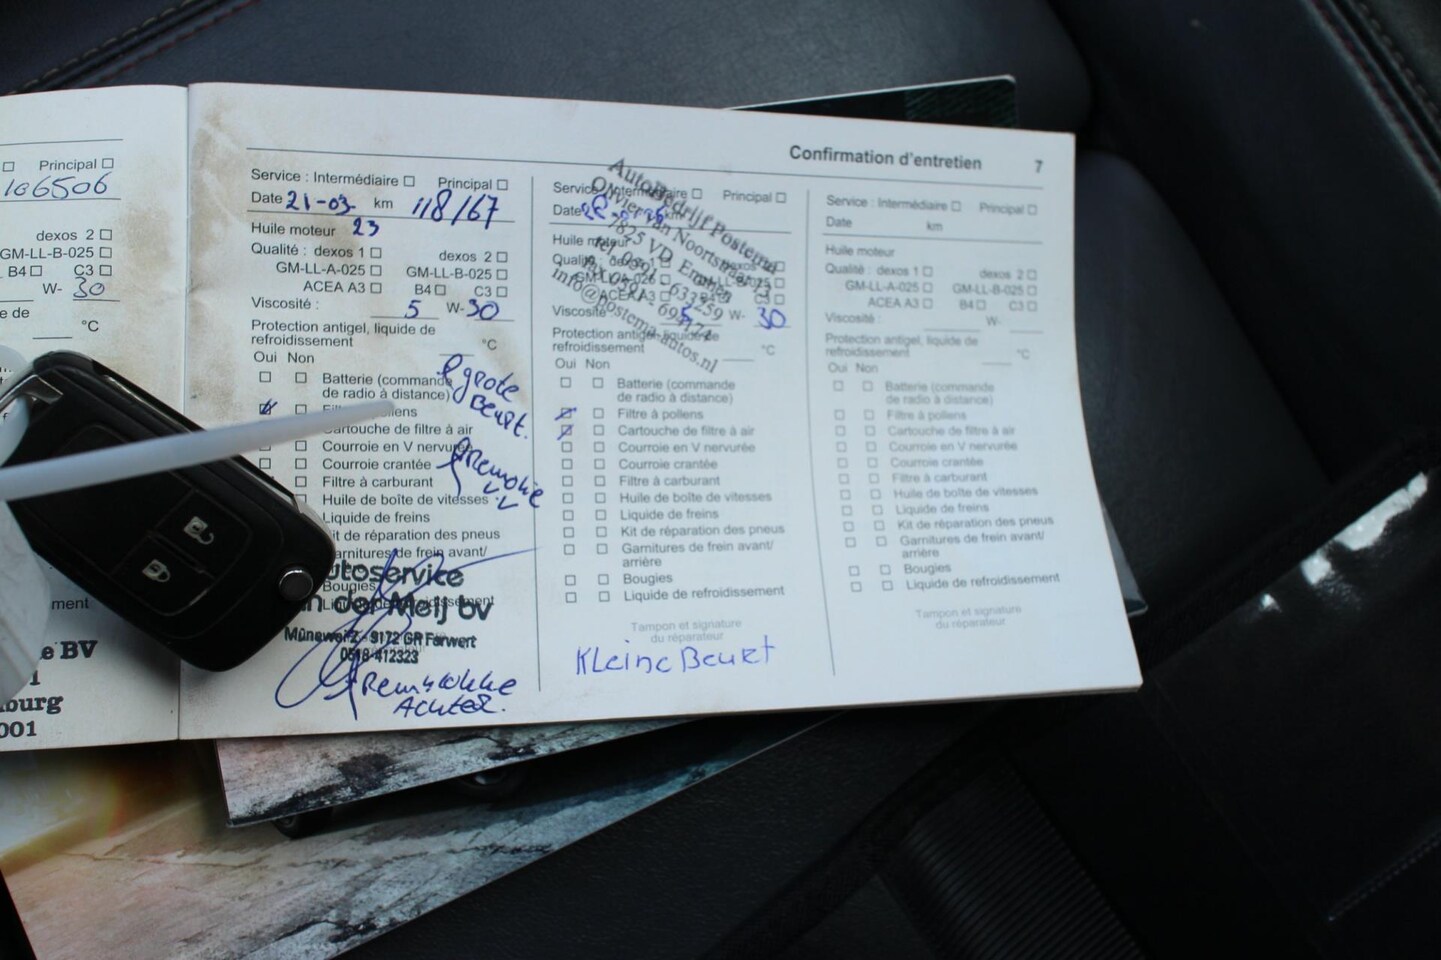 Confirmation d'entretien 7
Principal
106506
dexos 2
GM-LL-B-025
B4 C3
W- 30
e de
°C
ment
e BV
burg
001
Service : Intermédiaire Principal
Date 21-03 km 118167
Huile moteur 23
Qualité : dexos 1 dexos 2
GM-LL-A-025 GM-LL-B-025
ACEA A3 B4 C3
Viscosité : 5 W-30
Protection antigel, liquide de
refroidissement °C
Oui Non
Batterie (commande
de radio à distance)
grote
Beurt.
Cartouche de filtre à air
Courroie en V nervurée
Courroie crantée
Filtre à carburant
Huile de boîte de vitesses
Liquide de freins
it de réparation des pneus
arnitures de frein avant/
Bougies
utoservice
n der Meij bv
9172 GR Ferwert
0518-412323
Achter.
Service : Intermédiaire Principal
Date km
Huile moteur
Viscosité 5 W- 30
Protection antigel, liquide de
refroidissement °C
Oui Non
Autobedrijf Postema
Olivier van Noortstraat 13
7825 VD Emmen
tel. 0591 - 633259
info@postema-autos.nl
Batterie (commande
de radio à distance)
Filtre à pollens
Cartouche de filtre à air
Courroie en V nervurée
Courroie crantée
Filtre à carburant
Huile de boîte de vitesses
Liquide de freins
Kit de réparation des pneus
Garnitures de frein avant/
arrière
Bougies
Liquide de refroidissement
Tampon et signature
du réparateur
Kleine Beurt
Service : Intermédiaire Principal
Date km
Huile moteur
Qualité : dexos 1 dexos 2
GM-LL-A-025 GM-LL-B-025
ACEA A3 B4 C3
Viscosité : W-
Protection antigel, liquide de
refroidissement °C
Oui Non
Batterie (commande
de radio à distance)
Filtre à pollens
Cartouche de filtre à air
Courroie en V nervurée
Courroie crantée
Filtre à carburant
Huile de boîte de vitesses
Liquide de freins
Kit de réparation des pneus
Garnitures de frein avant/
arrière
Bougies
Liquide de refroidissement
Tampon et signature
du réparateur